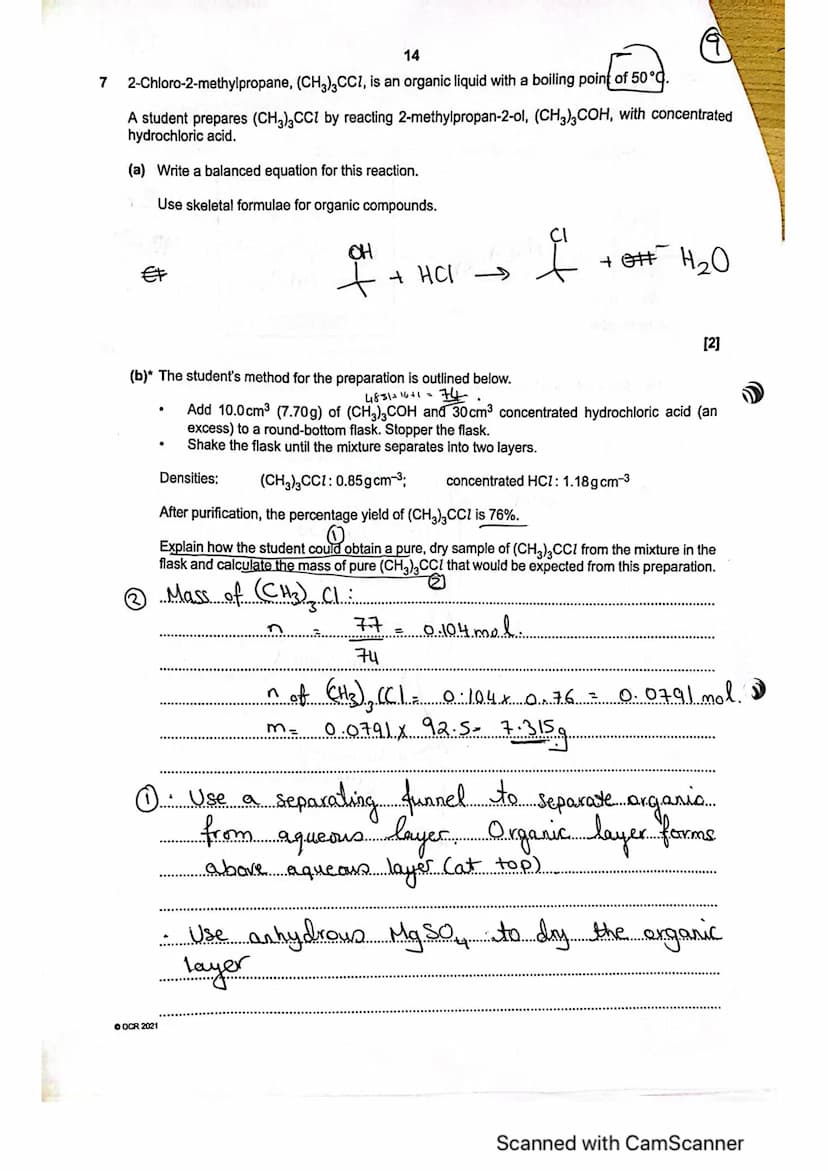 14
9
7 2-Chloro-2-methylpropane, (CH₃)₃CCl, is an organic liquid with a boiling point of 50 °C.
A student prepares (CH₃)₃CCl by reacting 2-methylpropan-2-ol, (CH₃)₃COH, with concentrated
hydrochloric acid.
(a) Write a balanced equation for this reaction.
Use skeletal formulae for organic compounds.
OH Cl
+ HCl → + H₂O
[2]
(b)* The student's method for the preparation is outlined below.
= 74.
• Add 10.0 cm³ (7.70 g) of (CH₃)₃COH and 30 cm³ concentrated hydrochloric acid (an
excess) to a round-bottom flask. Stopper the flask.
• Shake the flask until the mixture separates into two layers.
Densities: (CH₃)₃CCl: 0.85 g cm⁻³; concentrated HCl: 1.18 g cm⁻³
After purification, the percentage yield of (CH₃)₃CCl is 76%.
①
Explain how the student could obtain a pure, dry sample of (CH₃)₃CCl from the mixture in the
flask and calculate the mass of pure (CH₃)₃CCl that would be expected from this preparation.
②
② Mass of (CH₃)₃Cl:
n = 7.7 = 0.104 mol.
74
n of (CH₃)₃CCl = 0.104 x 0.76 = 0.0791 mol.
m = 0.0791 x 92.5 = 7.315g
① • Use a separating funnel to separate organic
from aqueous layer. Organic layer forms
above aqueous layer (at top)
• Use anhydrous MgSO₄ to dry the organic
layer
© OCR 2021
Scanned with CamScanner